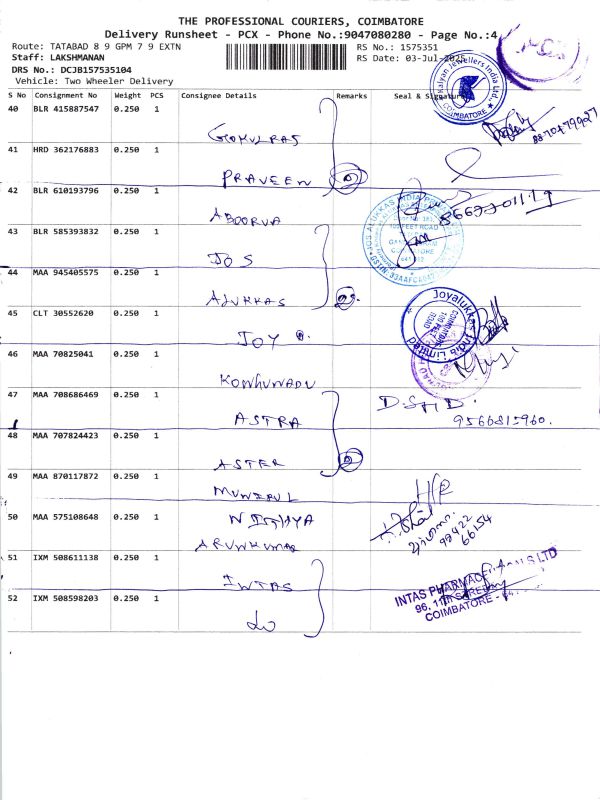 THE PROFESSIONAL COURIERS, COIMBATORE
Delivery Runsheet - PCX - Phone No.:9047080280 - Page No.:4
Route: TATABAD 8 9 GPM 7 9 EXTN
RS No.: 1575351
Staff: LAKSHMANAN
RS Date: 03-Jul-2025
DRS No.: DCJB157535104
Vehicle: Two Wheeler Delivery
S No Consignment No Weight PCS Consignee Details Remarks Seal & Signature
Kalyan Jewellers India Ltd.
COIMBATORE
40 BLR 415887547 0.250 1
GOKULRAJ
8870479927
41 HRD 362176883 0.250 1
PRAVEEN
42 BLR 610193796 0.250 1
APOORVA
43 BLR 585393832 0.250 1
JOS
JOS ALUKKAS INDIA
100 FEET ROAD
44 MAA 945405575 0.250 1
ALUKKAS
45 CLT 30552620 0.250 1
JOY
Joyalukkas India Limited
100 FEET ROAD
COIMBATORE
46 MAA 70825041 0.250 1
47 MAA 708686469 0.250 1
ASTRA
9566815960.
48 MAA 707824423 0.250 1
ASTER
49 MAA 870117872 0.250 1
50 MAA 575108648 0.250 1
NITHYA
99422
66154
ARUNKUMAR
51 IXM 508611138 0.250 1
INTAS
INTAS PHARMACEUTICALS LTD
96, 11th STREET
COIMBATORE
52 IXM 508598203 0.250 1